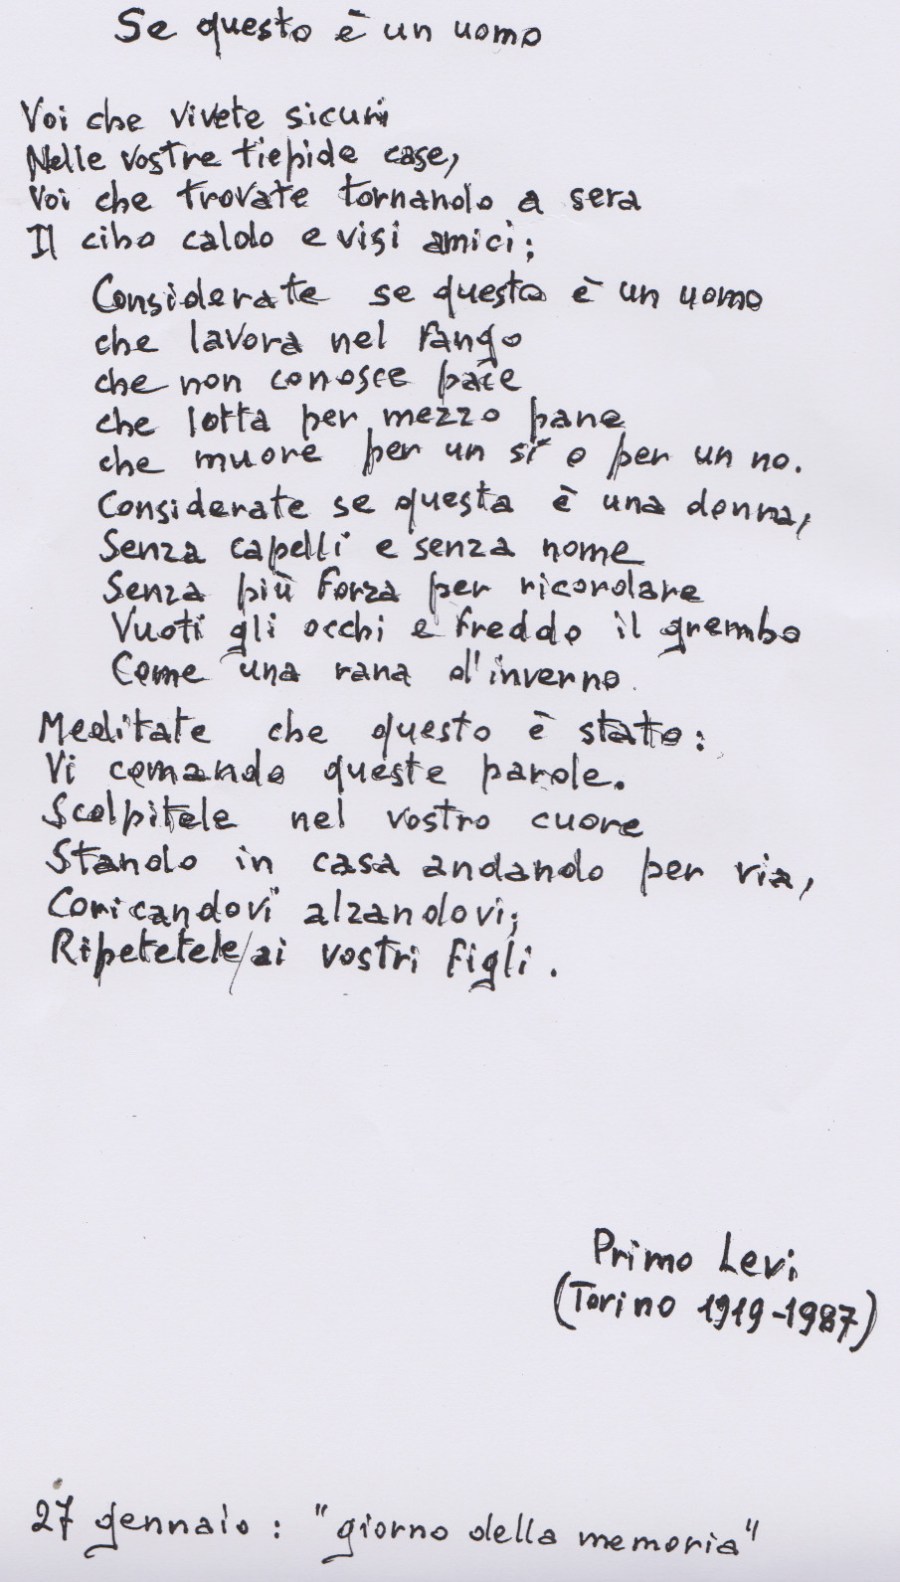 Se questo è un uomo
Voi che vivete sicuri
Nelle vostre tiepide case,
Voi che trovate tornando a sera
Il cibo caldo e visi amici;
Considerate se questo è un uomo
che lavora nel fango
che non conosce pace
che lotta per mezzo pane
che muore per un sì o per un no.
Considerate se questa è una donna,
Senza capelli e senza nome
Senza più forza per ricordare
Vuoti gli occhi e freddo il grembo
Come una rana d'inverno.
Meditate che questo è stato:
Vi comando queste parole.
Scolpitele nel vostro cuore
Stando in casa andando per via,
Coricandovi alzandovi;
Ripetetele/ai vostri figli.
Primo Levi
(Torino 1919-1987)
27 gennaio: "giorno della memoria"